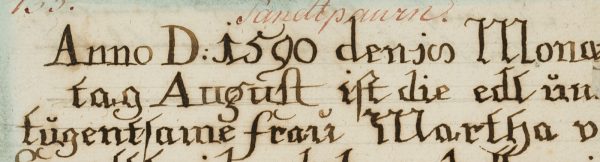 133. Sandtpaurn.
Anno D: 1590 den 10 Mona
tag August ist die edl un
tugentsame fraŭ Martha v